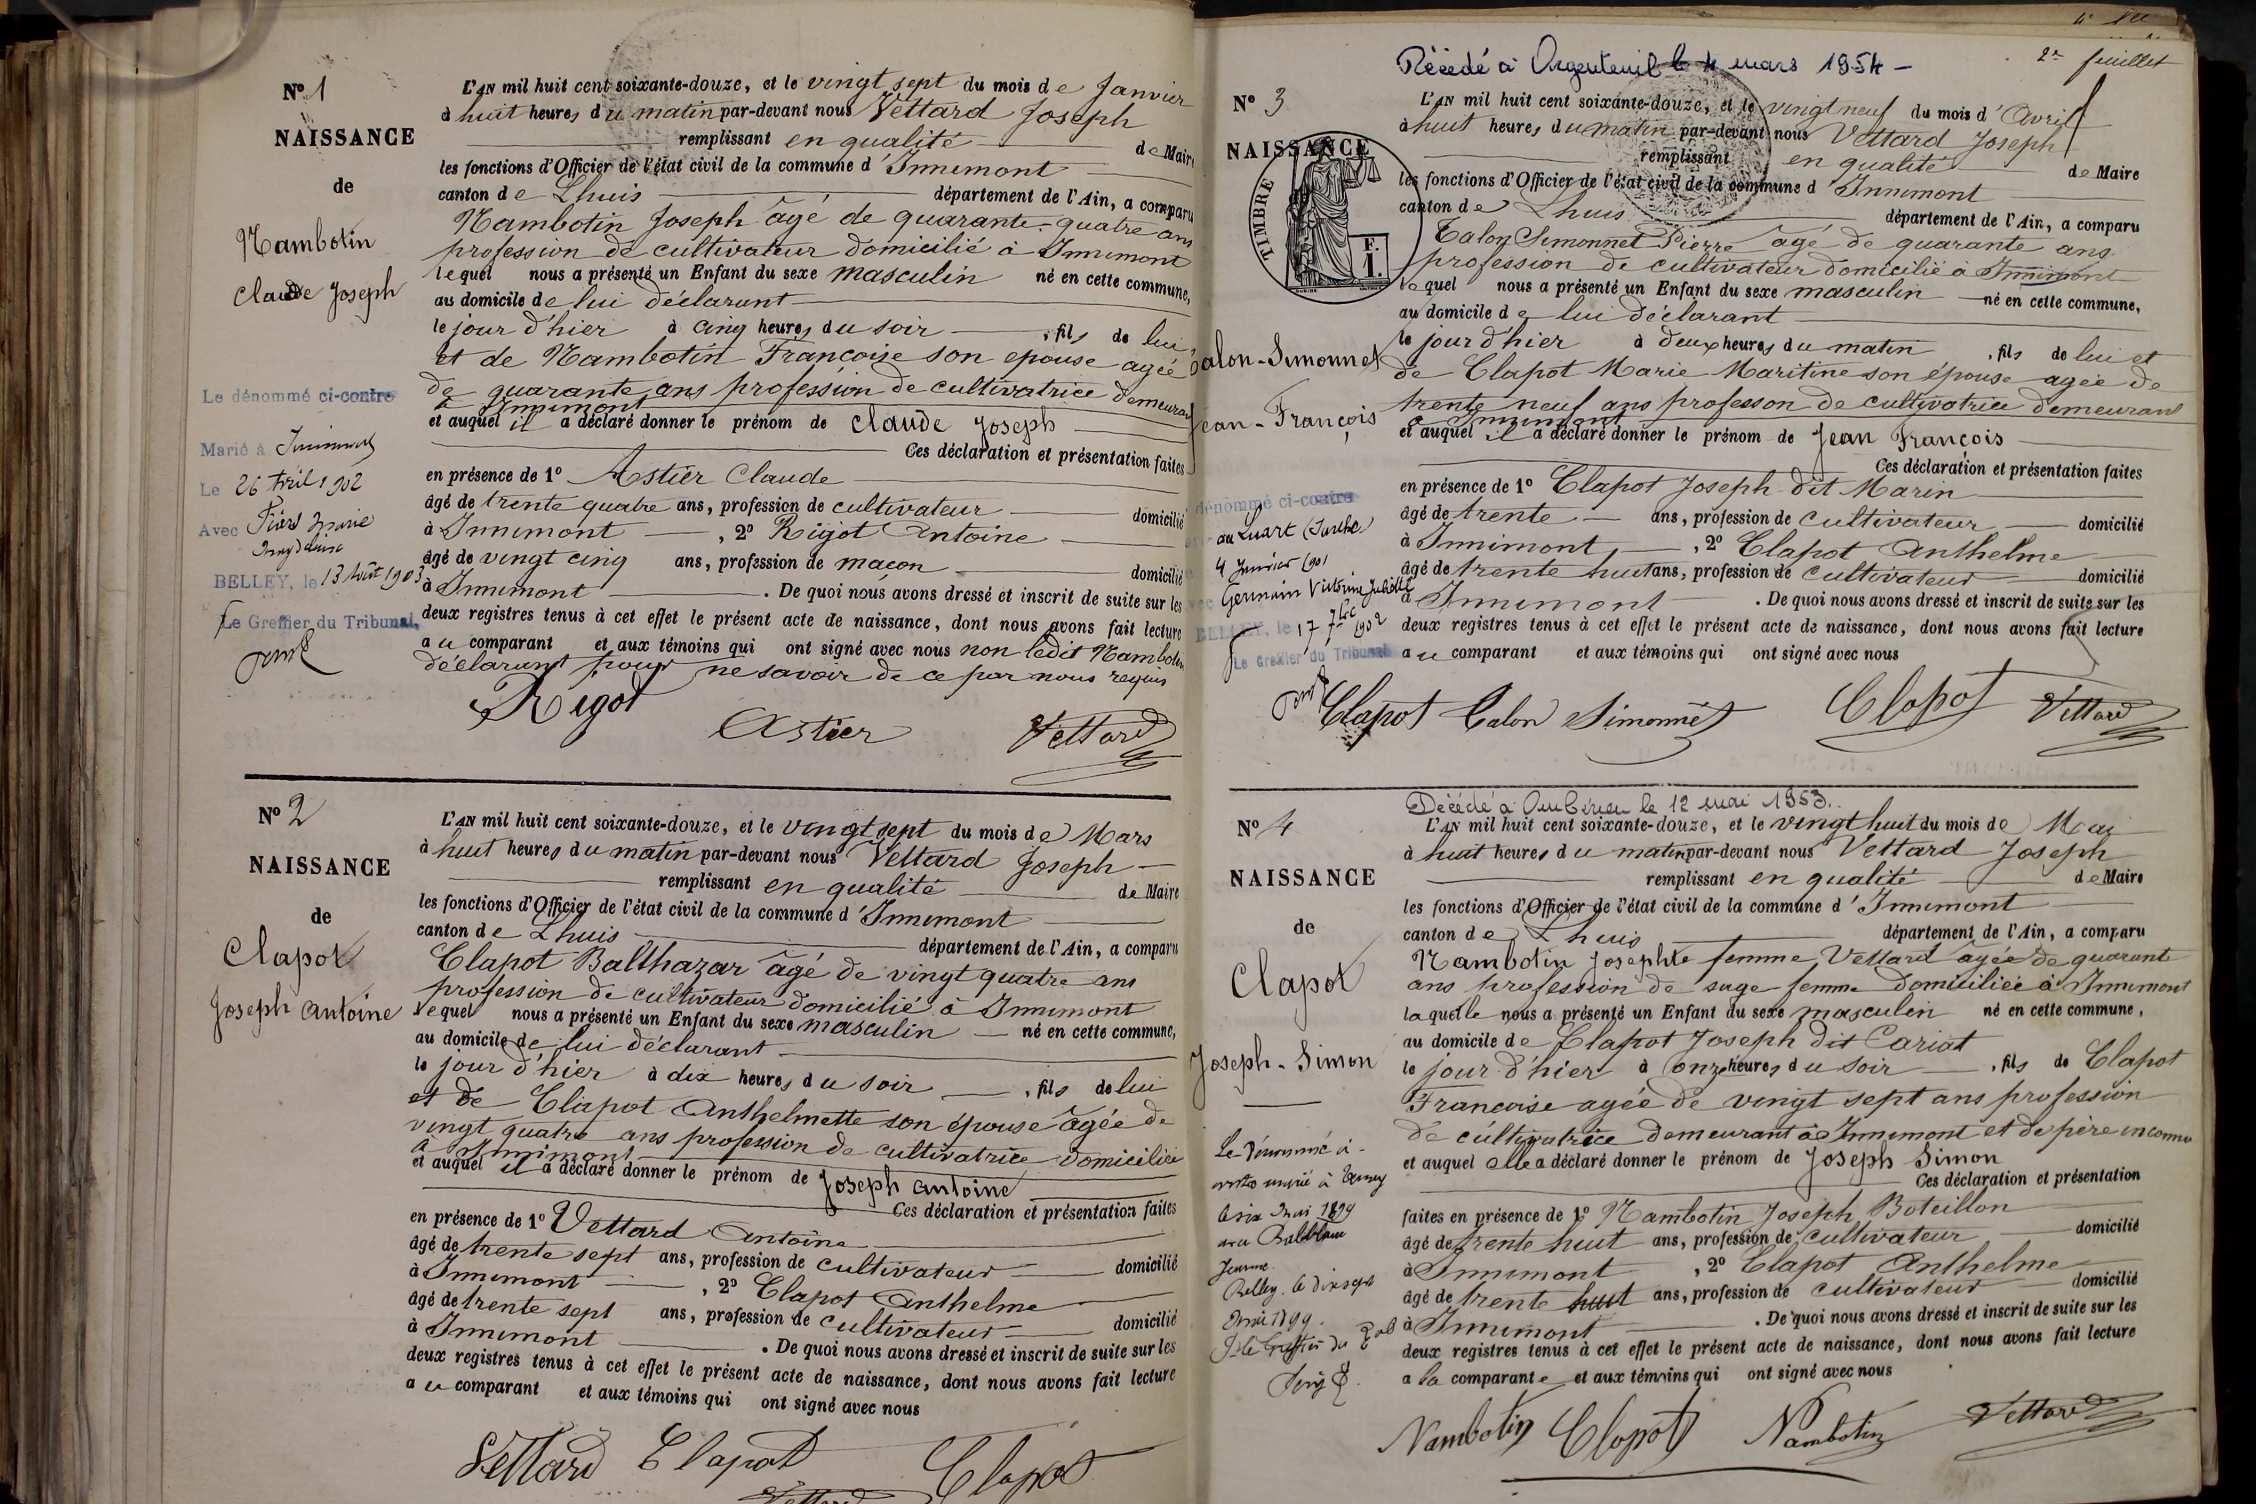 No 1
NAISSANCE
de
Nambotin
Claude Joseph
Le dénommé ci-contre
Marié à Innimont
Le 26 Avril 1902
Avec
BELLEY, le 13 Août 1903
Le Greffier du Tribunal,
L'AN mil huit cent soixante-douze, et le vingt sept du mois de Janvier
à huit heures du matin par-devant nous Vettard Joseph
remplissant en qualité de Maire
les fonctions d'Officier de l'état civil de la commune d'Innimont
canton de Lhuis département de l'Ain, a comparu
Nambotin Joseph âgé de quarante-quatre ans
profession de cultivateur domicilié à Innimont
lequel nous a présenté un Enfant du sexe masculin né en cette commune,
au domicile de lui déclarant
le jour d'hier à cinq heures du soir , fils de lui
et de Nambotin Françoise son épouse agée
de quarante ans profession de cultivatrice demeurant
à Innimont
et auquel il a déclaré donner le prénom de Claude Joseph
Ces déclaration et présentation faites
en présence de 1o Astier Claude
âgé de trente quatre ans, profession de cultivateur domicilié
à Innimont , 2o Rigot Antoine
âgé de vingt cinq ans, profession de maçon domicilié
à Innimont . De quoi nous avons dressé et inscrit de suite sur les
deux registres tenus à cet effet le présent acte de naissance, dont nous avons fait lecture
au comparant et aux témoins qui ont signé avec nous non ledit Nambotin
déclarant pour ne savoir de ce par nous requis
Rigot Astier Vettard
No 2
NAISSANCE
de
Clapot
Joseph Antoine
L'AN mil huit cent soixante-douze, et le vingt sept du mois de Mars
à huit heures du matin par-devant nous Vettard Joseph
remplissant en qualité de Maire
les fonctions d'Officier de l'état civil de la commune d'Innimont
canton de Lhuis département de l'Ain, a comparu
Clapot Balthazar âgé de vingt quatre ans
profession de cultivateur domicilié à Innimont
lequel nous a présenté un Enfant du sexe masculin né en cette commune,
au domicile de lui déclarant
le jour d'hier à dix heures du soir , fils de lui
et de Clapot Anthelmette son épouse âgée de
vingt quatre ans profession de cultivatrice domiciliée
à Innimont
et auquel il a déclaré donner le prénom de Joseph Antoine
Ces déclaration et présentation faites
en présence de 1o Vettard Antoine
âgé de trente sept ans, profession de cultivateur domicilié
à Innimont , 2o Clapot Anthelme
âgé de trente sept ans, profession de cultivateur domicilié
à Innimont . De quoi nous avons dressé et inscrit de suite sur les
deux registres tenus à cet effet le présent acte de naissance, dont nous avons fait lecture
au comparant et aux témoins qui ont signé avec nous
Vettard Clapot Clapot
Vettard
2e feuillet
Décédé à Argenteuil le 4 mars 1954 -
No 3
NAISSANCE
TIMBRE
F.
1.
Calon-Simonnet
Jean-François
dénommé ci-contre
au Luart (Sarthe)
4 Janvier 1901
Germain Victorine Juliette
BELLEY, le 17 7bre 1902
Le Greffier du Tribunal
L'AN mil huit cent soixante-douze, et le vingt neuf du mois d'Avril
à huit heures du matin par-devant nous Vettard Joseph
remplissant en qualité de Maire
les fonctions d'Officier de l'état civil de la commune d'Innimont
canton de Lhuis département de l'Ain, a comparu
Calon Simonnet Pierre âgé de quarante ans
profession de cultivateur domicilié à Innimont
lequel nous a présenté un Enfant du sexe masculin né en cette commune,
au domicile de lui déclarant
le jour d'hier à deux heures du matin , fils de lui et
de Clapot Marie Maritine son épouse agée de
trente neuf ans professon de cultivatrice demeurant
à Innimont
et auquel il a déclaré donner le prénom de Jean François
Ces déclaration et présentation faites
en présence de 1o Clapot Joseph dit Marin
âgé de trente ans, profession de cultivateur domicilié
à Innimont , 2o Clapot Anthelme
âgé de trente huit ans, profession de cultivateur domicilié
à Innimont . De quoi nous avons dressé et inscrit de suite sur les
deux registres tenus à cet effet le présent acte de naissance, dont nous avons fait lecture
au comparant et aux témoins qui ont signé avec nous
Clapot Calon Simonnet Clapot Vettard
Décédé à Ambérieu le 12 mai 1953.
No 4
NAISSANCE
de
Clapot
Joseph-Simon
Le dénommé
marié à
le six Mai 1899
avec
Jeanne
Belley, le dix sept
Mai 1899.
Le Greffier du
L'AN mil huit cent soixante-douze, et le vingt huit du mois de Mai
à huit heures du matin par-devant nous Vettard Joseph
remplissant en qualité de Maire
les fonctions d'Officier de l'état civil de la commune d'Innimont
canton de Lhuis département de l'Ain, a comparu
Nambotin Josephte femme Vettard âgée de quarante
ans profession de sage femme domiciliée à Innimont
laquelle nous a présenté un Enfant du sexe masculin né en cette commune,
au domicile de Clapot Joseph dit Cariat
le jour d'hier à onze heures du soir , fils de Clapot
Françoise agée de vingt sept ans profession
de cultivatrice demeurant à Innimont et de père inconnu
et auquel elle a déclaré donner le prénom de Joseph Simon
Ces déclaration et présentation
faites en présence de 1o Nambotin Joseph Boteillon
âgé de trente huit ans, profession de cultivateur domicilié
à Innimont , 2o Clapot Anthelme
âgé de trente huit ans, profession de cultivateur domicilié
à Innimont . De quoi nous avons dressé et inscrit de suite sur les
deux registres tenus à cet effet le présent acte de naissance, dont nous avons fait lecture
a la comparante et aux témoins qui ont signé avec nous
Nambotin Clapot Nambotin Vettard